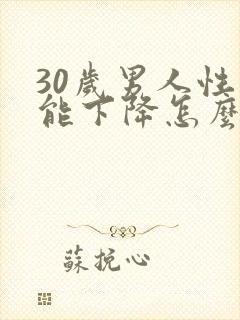 30歲男人性
能下降怎麼
蘇挽心